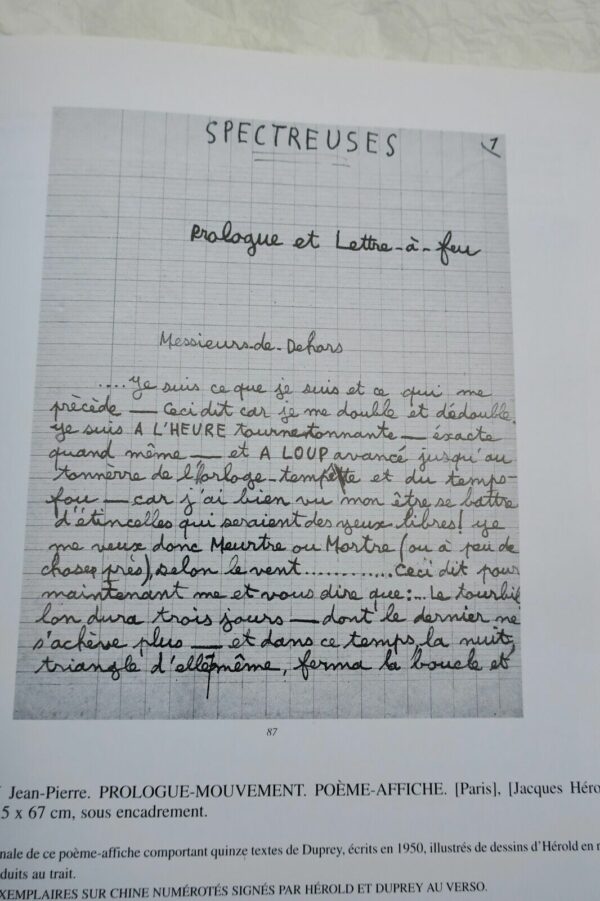 SPECTREUSES
1
Prologue et Lettre-à-feu
Messieurs-de-Dehors
....Je suis ce que je suis et ce qui me
précède — Ceci dit car je me double et dédouble.
Je suis A L'HEURE tournetonnante — éxacte
quand même — et A LOUP avancé jusqu'au
tonnèrre de l'orloge-tempête et du temps-
fou — car j'ai bien vu mon être se battre
d'étincelles qui seraient des yeux libres! Je
me veux donc Meurtre ou Mortre (ou à peu de
choses près), selon le vent............Ceci dit pour
maintenant me et vous dire que:... Le tourbil
lon dura trois jours — dont le dernier ne
s'achève plus — et dans ce temps, la nuit,
triangle d'elle même, ferma la boucle et
87
Jean-Pierre. PROLOGUE-MOUVEMENT. POÈME-AFFICHE. [Paris], [Jacques Héro
5 x 67 cm, sous encadrement.
nale de ce poème-affiche comportant quinze textes de Duprey, écrits en 1950, illustrés de dessins d'Hérold en
duits au trait.
XEMPLAIRES SUR CHINE NUMÉROTÉS SIGNÉS PAR HÉROLD ET DUPREY AU VERSO.